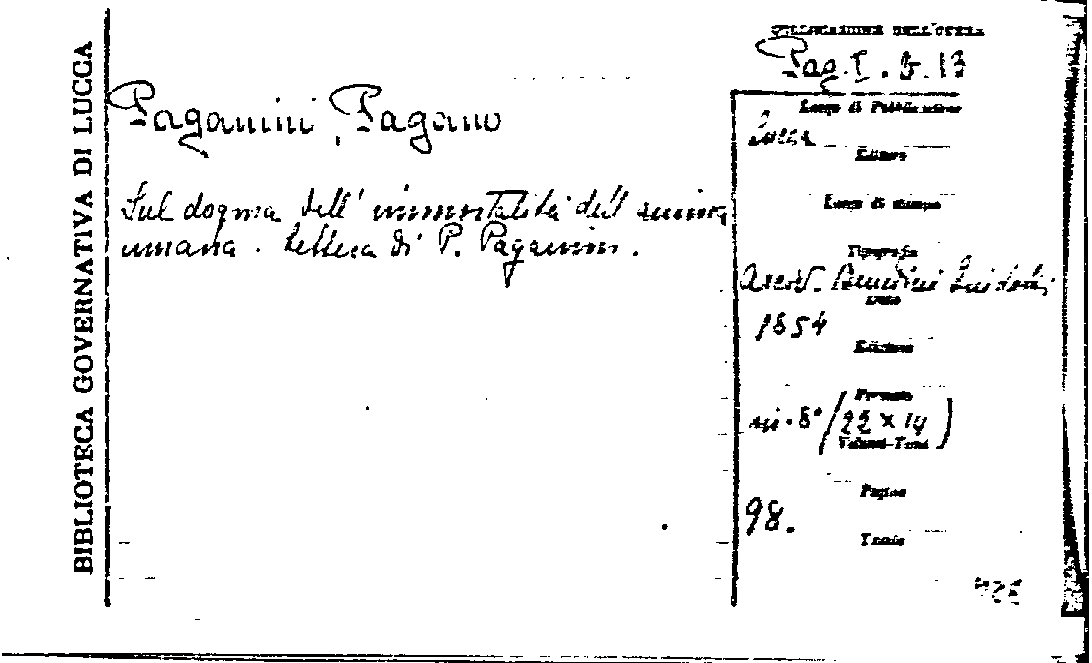 BIBLIOTECA GOVERNATIVA DI LUCCA
Paganini, Pagano
Sul dogma dell'immortalità dell'anima
umana. Lettera di P. Paganini.
COLLOCAZIONE DELL'OPERA
Pag. I. b. 13
Luogo di Pubblicazione
Lucca
Editore
Luogo di stampa
Tipografia
Arciv. Benedini Guidotti
Data
1854
Edizione
Formato
in-8° (22 x 14)
Volumi-Tomi
Pagine
98.
Tavole